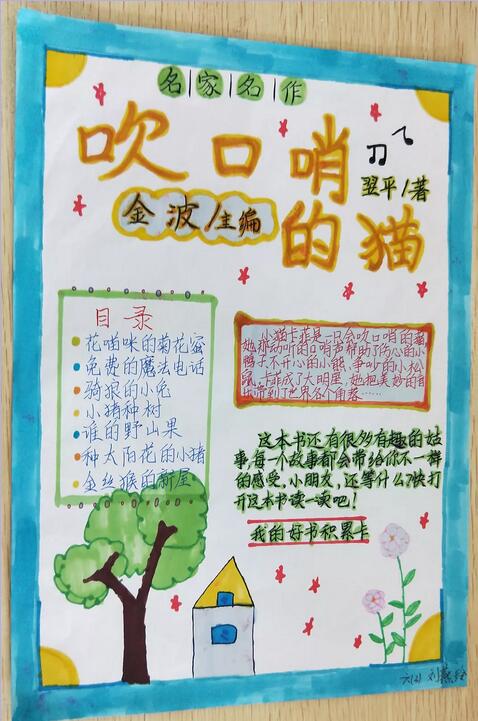 名家名作
吹口哨的猫
翌平/著
金波/主编
目录
花喵咪的菊花蜜
免费的魔法电话
骑狼的小兔
小猪种树
谁的野山果
种太阳花的小猪
金丝猴的新屋
小猫卡菲是一只会吹口哨的猫,
她那动听的口哨声帮助了伤心的小
鸭子、不开心的小熊、争吵的小松
鼠,卡菲成了大明星,她把美妙的音
乐带到了世界各个角落……
这本书还有很多有趣的故
事,每一个故事都会带给你不一样
的感受,小朋友,还等什么?快打
开这本书读一读吧!
我的好书积累卡
六(2) 刘燕绘